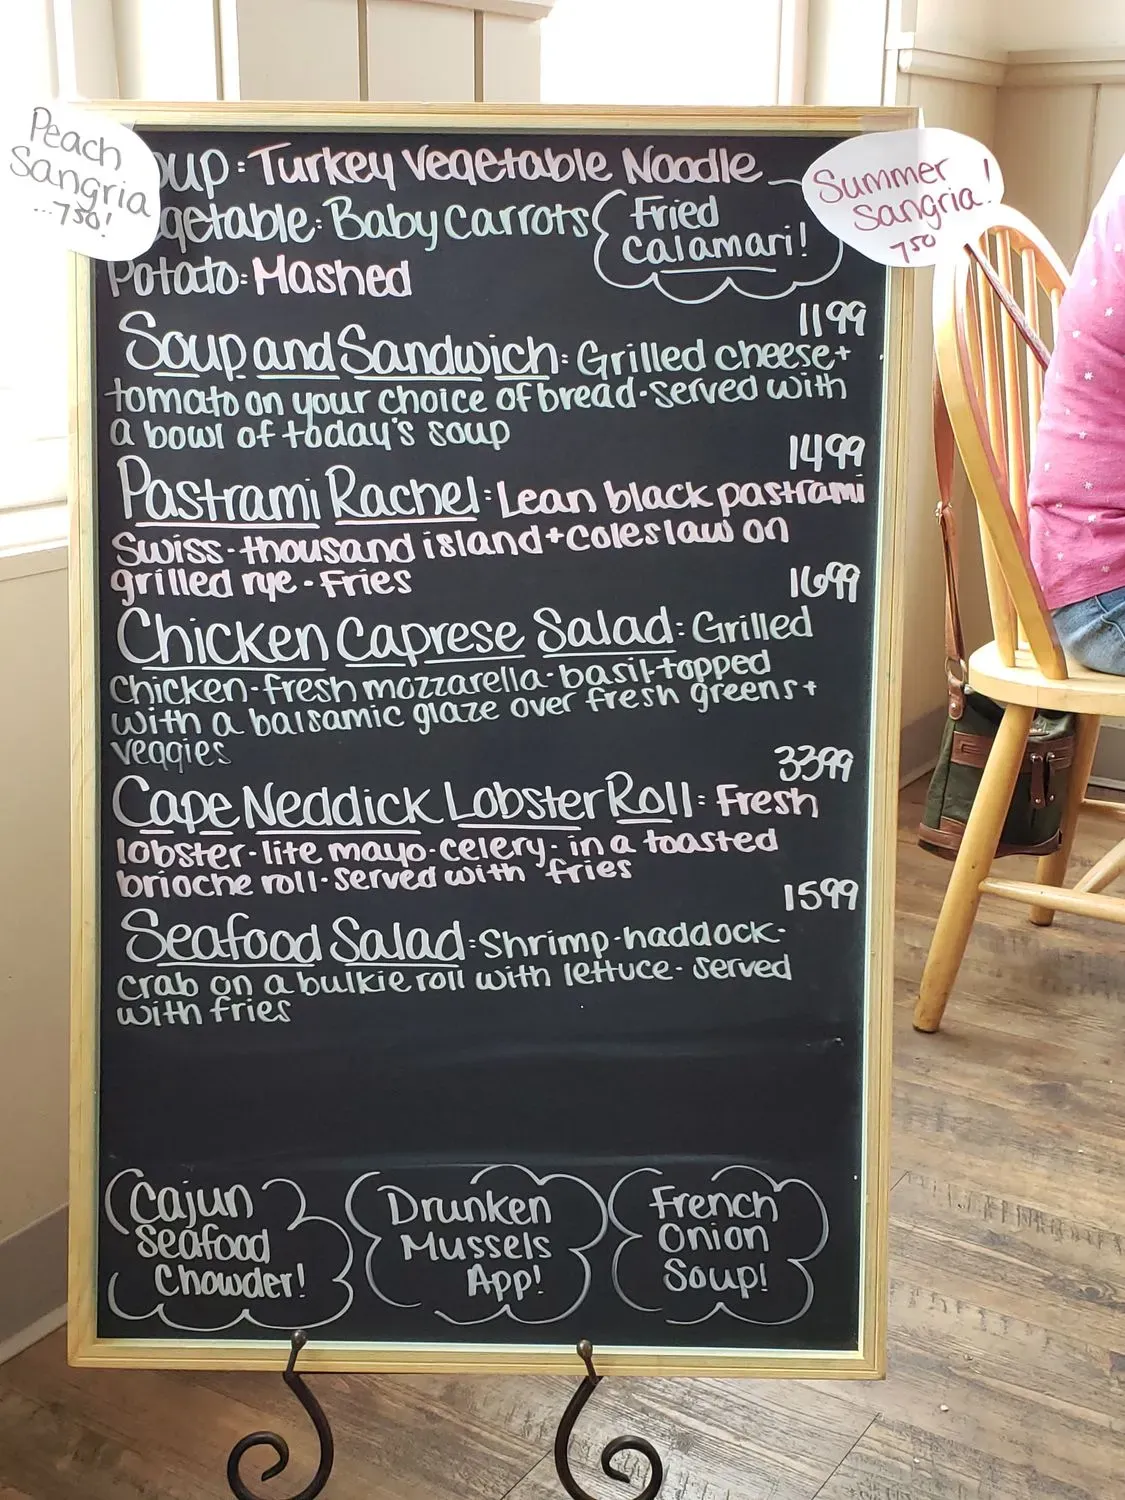 Peach
Sangria
...750!
Summer
Sangria!
750
oup: Turkey Vegetable Noodle
getable: Baby Carrots
Fried
Calamari!
Potato: Mashed
1199
Soup and Sandwich: Grilled cheese +
tomato on your choice of bread - served with
a bowl of today's soup
1499
Pastrami Rachel: Lean black pastrami
Swiss - thousand island + coleslaw on
grilled rye - Fries
1699
Chicken Caprese Salad: Grilled
chicken - fresh mozzarella - basil - topped
with a balsamic glaze over fresh greens +
veggies
3399
Cape Neddick Lobster Roll: Fresh
lobster - lite mayo - celery - in a toasted
brioche roll - served with fries
1599
Seafood Salad: Shrimp - haddock -
crab on a bulkie roll with lettuce - served
with fries
Cajun
Seafood
Chowder!
Drunken
Mussels
App!
French
Onion
Soup!